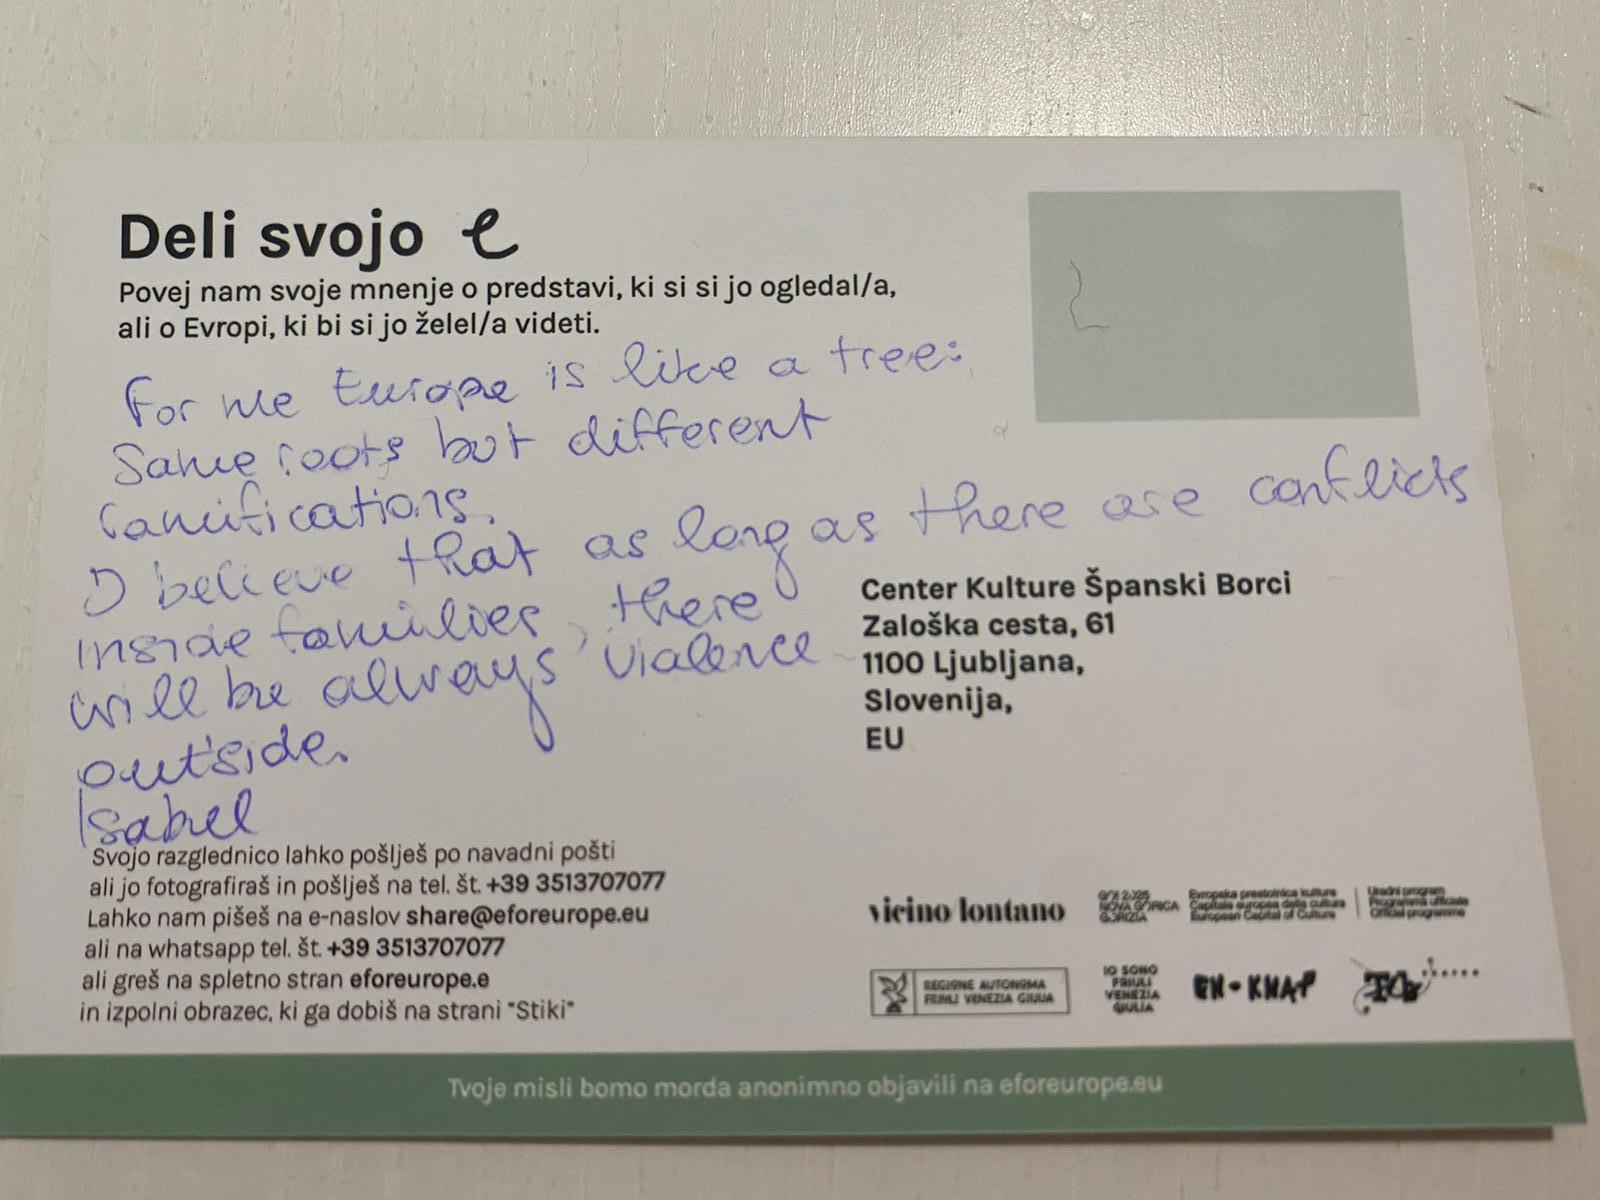 Deli svojo e
Povej nam svoje mnenje o predstavi, ki si si jo ogledal/a,
ali o Evropi, ki bi si jo želel/a videti.
For me Europe is like a tree:
Same roots but different
ramifications.
I believe that as long as there are conflicts
inside families, there
will be always violence
outside.
Isabel
Center Kulture Španski Borci
Zaloška cesta, 61
1100 Ljubljana,
Slovenija,
EU
Svojo razglednico lahko pošlješ po navadni pošti
ali jo fotografiraš in pošlješ na tel. št. +39 3513707077
Lahko nam pišeš na e-naslov share@eforeurope.eu
ali na whatsapp tel. št. +39 3513707077
ali greš na spletno stran eforeurope.e
in izpolni obrazec, ki ga dobiš na strani "Stiki"
vicino lontano
GO! 2025
NOVA GORICA
GORIZIA
Evropska prestolnica kulture
Capitale europea della cultura
European Capital of Culture
Uradni program
Programma ufficiale
Official programme
REGIONE AUTONOMA
FRIULI VENEZIA GIULIA
IO SONO
FRIULI
VENEZIA
GIULIA
EN-KNAP
Tvoje misli bomo morda anonimno objavili na eforeurope.eu